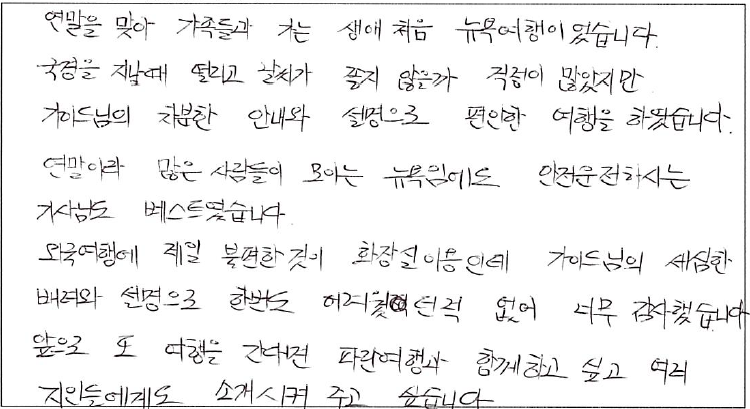 연말을 맞아 가족들과 가는 생애 처음 뉴욕여행이 었습니다.
국경을 지날때 떨리고 날씨가 춥지 않을까 걱정이 많았지만
가이드님의 차분한 안내와 설명으로 편안한 여행을 하였습니다.
연말이라 많은 사람들이 모이는 뉴욕임에도 안전운전하시는
기사님도 베스트였습니다.
외국여행에 제일 불편한 것이 화장실이용인데 가이드님의 세심한
배려와 설명으로 한번도 어려웠던적 없어 너무 감사했습니다
앞으로 또 여행을 간다면 파란여행과 함께하고 싶고 여러
지인들에게도 소개시켜 주고 싶습니다